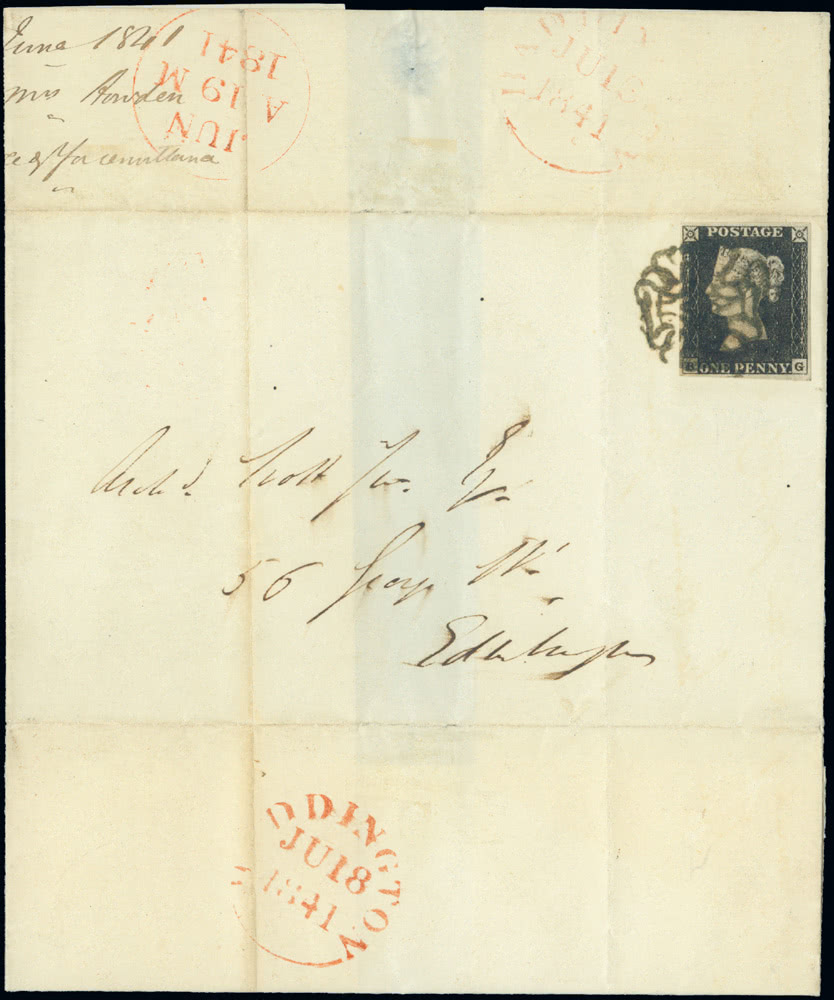 June 1841
Mrs Bowden
JUN
A 19 M
1841
HADDINGTON
JU 18
1841
POSTAGE
ONE PENNY
G
Archd. Scott Jun. Esq.
56 George St.
Edinburgh
DDINGTON
JU 18
1841